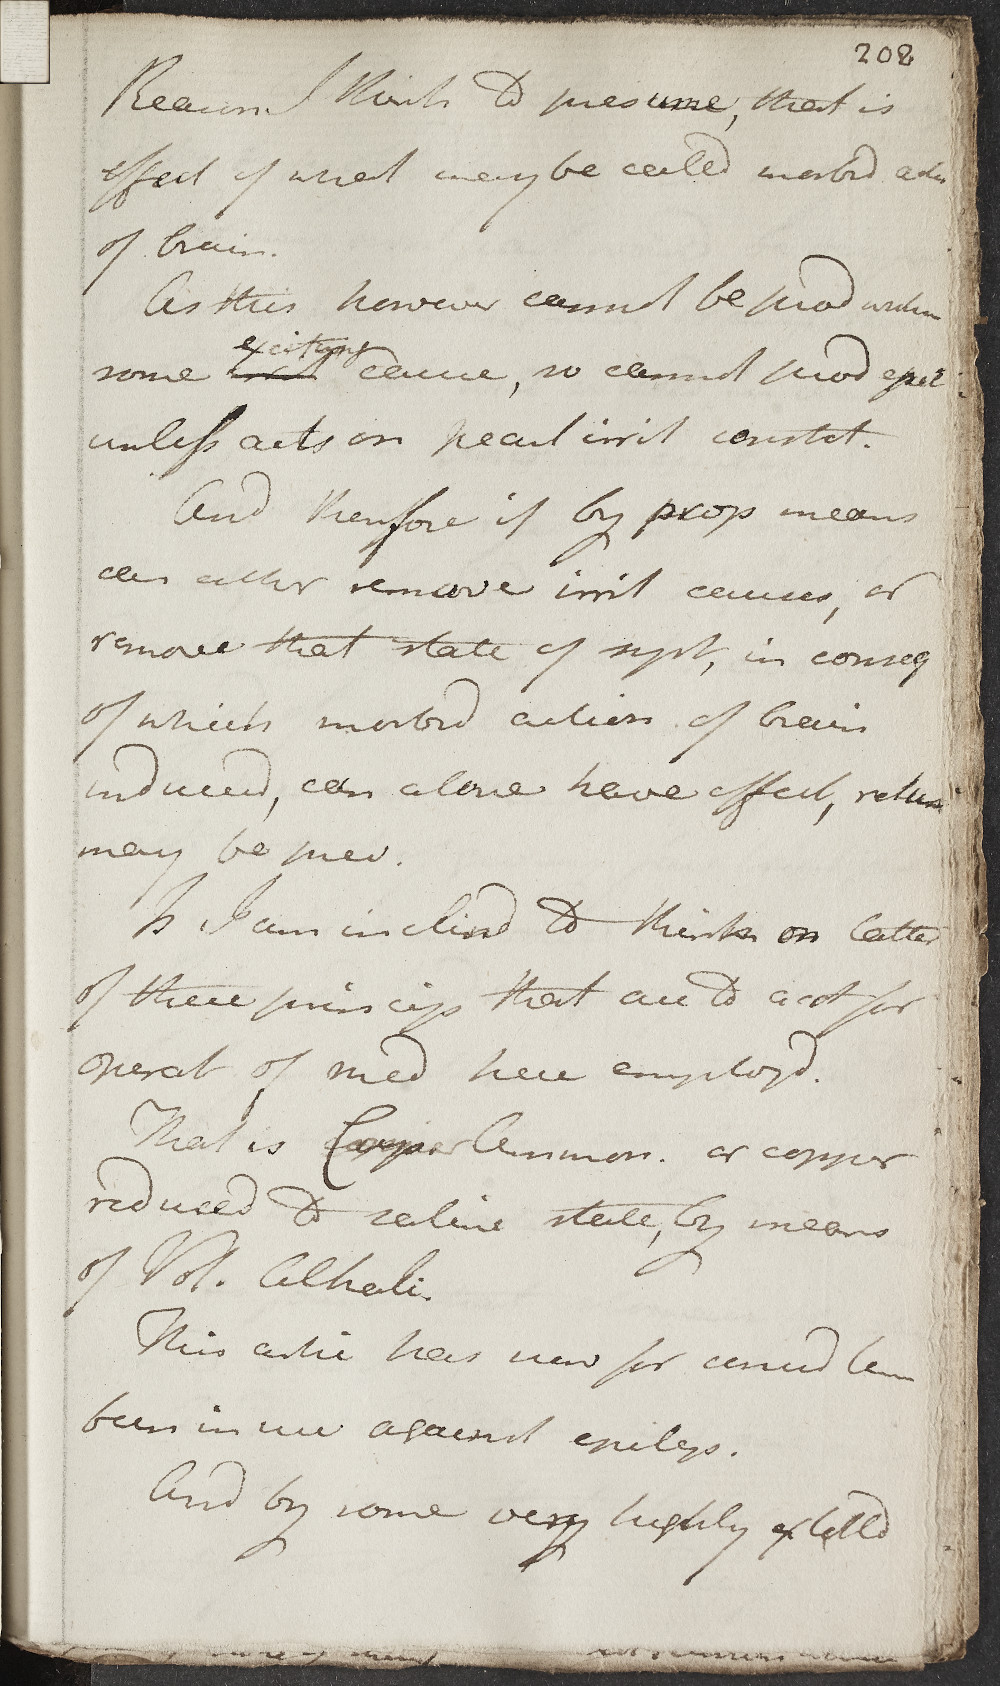 208
Reason I think to presume, that is
effect of what may be called morbid actn
of brain.
As this however cannot be prod withn
exciting
some irrit cause, so cannot prod epil
unless acts on pecul irrit constit.
And therefore if by prop means
can either remove irrit causes, or
remove that state of syst, in conseq
of which morbid action of brain
induced, can alone have effect, return
may be prev.
& I am inclind to think on latter
of these princips that are to act for
operat of med here employd.
That is Cuper Ammon. or copper
reduced to saline state, by means
of Vol. Alkali.
This artic has now for consid tim
been in use against epileps.
And by some very highly extolld